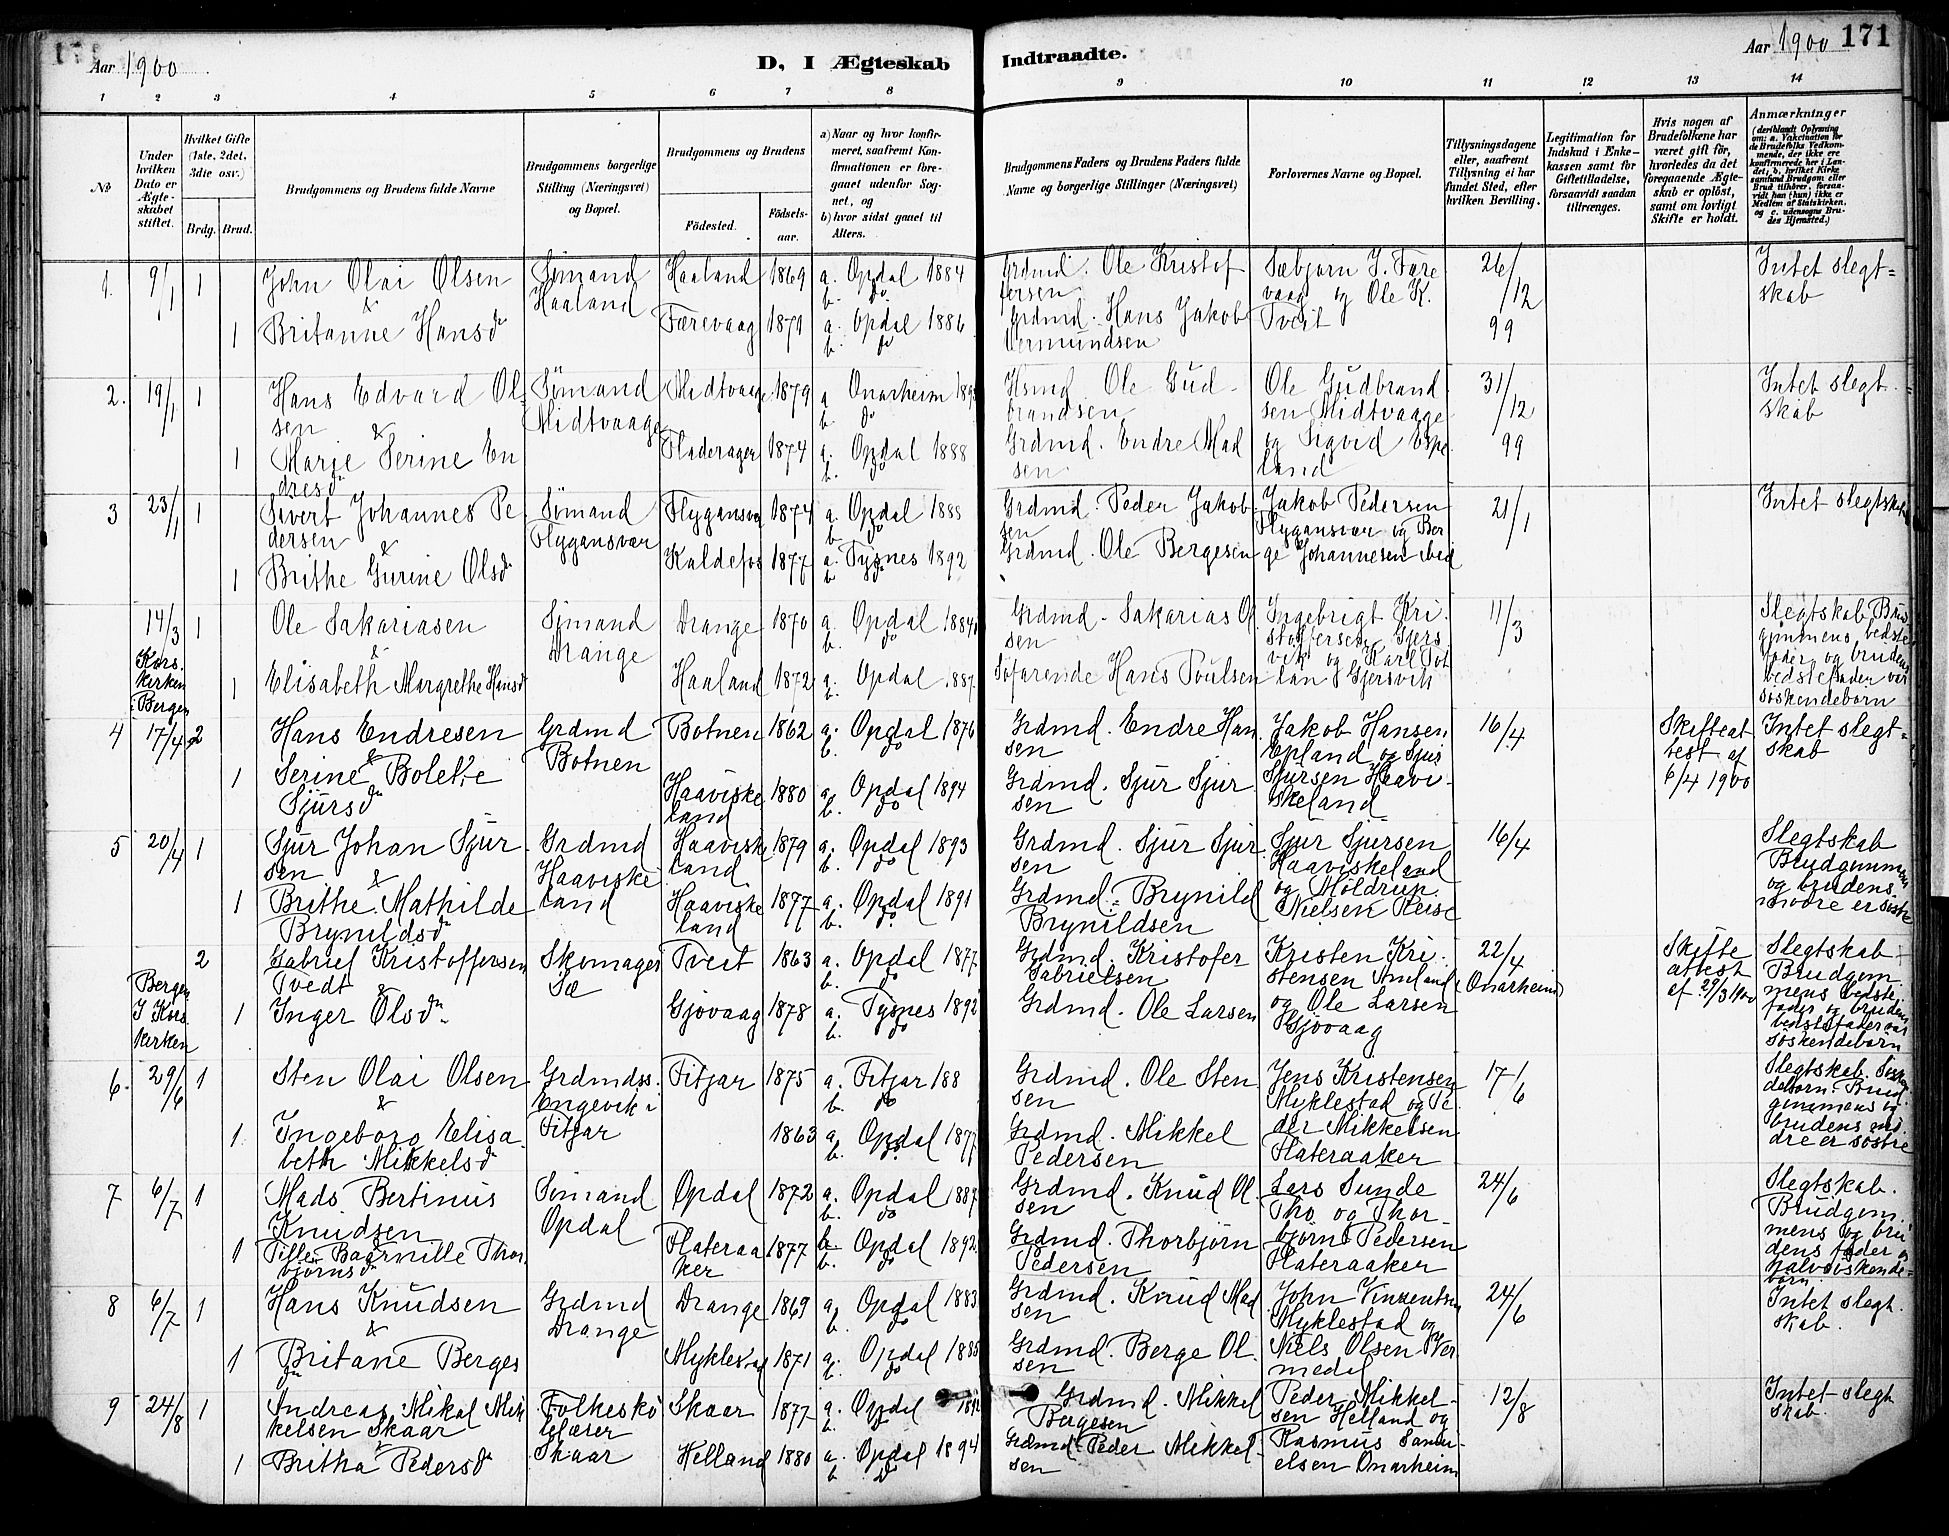 Aar 1900
D. I Ægteskab
Indtraadte.
Aar 1900 171
1 2 3 4 5 6 7 8 9 10 11 12 13 14
No
Under hvilken Dato er Ægteskabet stiftet.
Hvilket Gifte (1ste, 2det, 3die osv.)
Brdg. Brud.
Brudgommens og Brudens fulde Navne
Brudgommens borgerlige Stilling (Næringsvei) og Bopæl.
Brudgommens og Brudens
Fødested.
Fødselsaar.
a) Naar og hvor konfirmeret, saafremt Konfirmationen er foregaaet udenfor Sognet, og
b) hvor sidst gaaet til Alters.
Brudgommens Faders og Brudens Faders fulde Navne og borgerlige Stillinger (Næringsvei)
Forlovernes Navne og Bopæl.
Tillysningsdagene eller, saafremt Tillysning ei har fundet Sted, efter hvilken Bevilling.
Legitimation for Indskud i Enkekassen samt for Giftetilladelse, forsaavidt saadan tiltrænges.
Hvis nogen af Brudefolkene har været gift før, hvorledes da det foregaaende Ægteskab er opløst, samt om lovligt Skifte er holdt.
Anmærkninger
(deriblandt Oplysning om: a. Vakcination for de Brudefolks Vedkommende, der ikke ere konfirmerede her i Landet, b. hvilket Kirkesamfund Brudgom eller Brud tilhører, forsaavidt han (hun) ikke er Medlem af Statskirken, og c. udensogns Brudes Hjemsted.)
1. 9/1 1 John Olai Olsen Sømand Haaland Haaland 1869 a. Opdal 1884 b. do Grdmd. Ole Kristofersen Sæbjørn J. Færevaag og Ole K. Tveit 26/12 99 Intet slegtskab
&
1 Britanne Hansdr Færevaag 1871 a. Opdal 1886 b. do Grdmd. Hans Jakob Vermundsen
2. 19/1 1 Hans Edvard Olsen Sømand Midtvaage Midtvaage 1879 a Onarheim b do Hsmd Ole Gudbrandsen Ole Gudbrandsen Midtvaage og Sigvid Espeland 31/12 99 Intet slegtskab
&
1 Marje Serine Endresdr Fladerager 1874 a. Opdal 1888 b. do Grdmd. Endre Madsen
3 23/1 1 Sivert Johannes Pedersen Sømand Flygansvær Flygansvær 1874 a. Opdal 1888 b do Grdmd. Peder Jakobsen Jakob Pedersen Flygansvær og Berge Johannesen ibid 21/1 Intet slegtskab
&
1 Brithe Gurine Olsdr Kaldefos 1877 a. Tysnes 1892 b do Grdmd. Ole Bergesen
14/3 Korskirken i Bergen 1 Ole Sakariasen Sømand Drange Drange 1870 a. Opdal 1884 b. do Grdmd. Sakarias Olsen Ingebrigt Kristoffersen Gjersvik og Karl Totlan Gjersvik 11/3 Slegtskab. Brudgommens bedstefader og brudens bedstefader var søskendebørn
&
1 Elisabeth Margrethe Hansdr Haaland 1872 a. Opdal 1887 b. Søfarende Hans Poulsen
4 17/4 2 Hans Endresen Grdmd Botnen Botnen 1862 a. Opdal 1876 b. do Grdmd. Endre Hansen Jakob Hansen Epland og Sjur Sjursen Haaviskeland 16/4 Skifteattest af 6/4 1900 Intet slegtskab
&
1 Serine Bolette Sjursdr Haaviskeland 1880 a. Opdal 1894 b. do Grdmd. Sjur Sjursen
5 20/4 1 Sjur Johan Sjursen Grdmd Haaviskeland Haaviskeland 1879 a. Opdal 1893 b. do Grdmd. Sjur Sjursen Sjur Sjursen Haaviskeland og Møldrup Nielsen Reise 16/4 Slegtskab Brudgommens og brudens modre er søstre
&
1 Brithe Mathilde Brynildsdr Haaviskeland 1877 a. Opdal 1891 b. do Grdmd. Brynild Brynildsen
Bergen I Korskirken 2 Gabriel Kristoffersen Tvedt Skomager Sæ Tveit 1863 a. Opdal 1877 b. do Grdmd. Kristofer Gabrielsen Kristen Kristensen Amland og Ole Larsen Gjøvaag 22/4 (Onarheim) Skifteattest af 29/3 1900 Slegtskab Brudgommens bedstefader og brudens bedstefader var søskendebørn
&
1 Inger Olsdr Gjøvaag 1878 a. Tysnes 1892 b. do Grdmd. Ole Larsen
6. 29/6 1 Sten Olai Olsen Grdmdss. Engevik i Fitjar Fitjar 1875 a. Fitjar 188 b. do Grdmd. Ole Stensen Jens Kristensen Myklestad og Peder Mikkelsen Flateraaker 17/6 Slegtskab. Søskendebørn. Brudgommens og brudens modre er søstre
&
1. Ingeborg Elisabeth Mikkelsdr 1863 a. Opdal 1877 b. do Grdmd. Mikkel Pedersen
7 6/7 1 Mads Bertinus Knudsen Sømand Opdal Opdal 1872 a. Opdal 1887 b. do Grdmd. Knud Olsen Lars Sunde Tho og Thorbjørn Pedersen Flateraaker 24/6 Slegtskab. Brudgommens og brudens fader er halvsøskendebørn.
1 Thorbjørnsdr Flateraaker 1877 b Opdal 1892 b. do Grdmd. Thorbjørn Pedersen
8 6/7 1 Hans Knudsen Grdmd Drange Drange 1869 a. Opdal 1883 b. do Grdmd. Knud Madsen John Vinzentsen Myklestad og Niels Olsen Vermedal 24/6 Intet slegtskab.
&
1 Britane Bergesdr Myklestad 1871 a. Opdal 1885 b. do Grdmd. Berge Olsen
9 24/8 1 Andreas Mikal Mikkelsen Skaar Folkeskolelærer Skaar Skaar 1877 a. Opdal b. do Grdmd. Mikkel Bergesen Peder Mikkelsen Helland og Rasmus Samuelsen Onarheim 12/8 Intet slegtskab.
&
1 Britha Pedersdr Helland 1880 a. Opdal 1894 b do Grdmd. Peder Mikkelsen